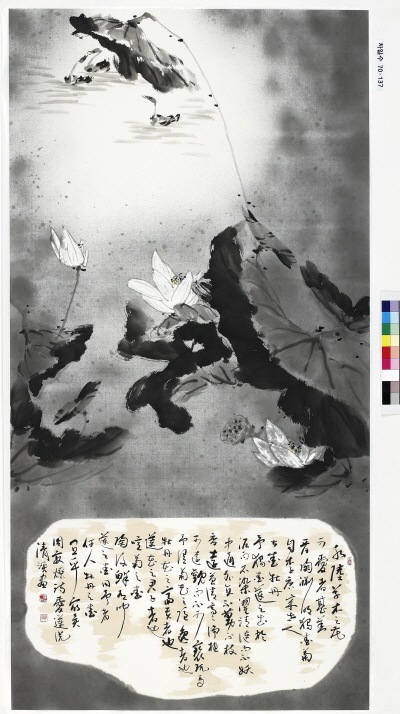 水陸草木之花
可愛者甚蕃
晉陶淵明獨愛菊
自李唐來世人
甚愛牡丹
予獨愛蓮之出於
泥而不染濯清漣而不妖
中通外直不蔓不枝
香遠益清亭亭淨植
可遠觀而不可褻玩焉
予謂菊花之隱逸者也
牡丹花之富貴者也
蓮花之君子者也
噫菊之愛
陶後鮮有聞
蓮之愛同予者
何人牡丹之愛
宜乎衆矣
周敦頤詩愛蓮說
清溪畵
저일수 70-137